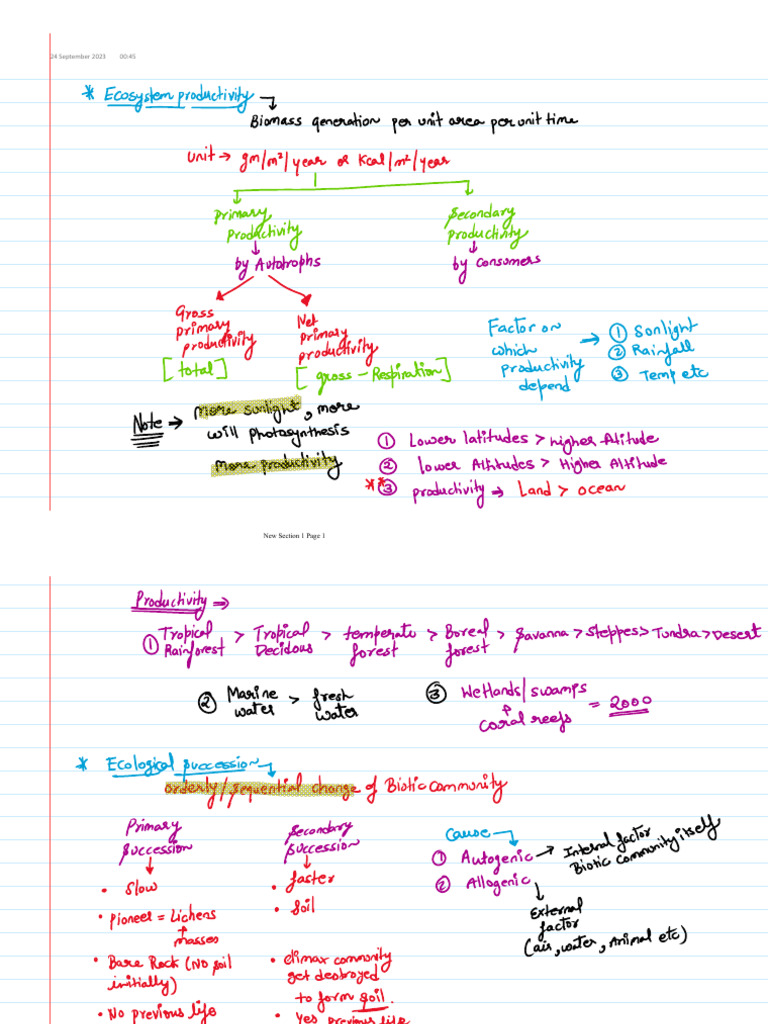 24 September 2023 00:45
* Ecosystem productivity →
Biomass generation per unit area per unit time
Unit → gm/m²/year or Kcal/m²/year
Primary
productivity
by Autotrophs
Secondary
productivity
by consumers
Gross
primary
productivity
[total]
Net
primary
productivity
[gross - Respiration]
Factor on
which
productivity
depend
→
① Sonlight
② Rainfall
③ Temp etc
Note → more sunlight, more
will photosynthesis
more productivity
① Lower latitudes > higher Altitude
② lower Altitudes > Higher Altitude
** ③ productivity → Land > ocean
New Section 1 Page 1
Productivity ⇒
① Tropical Rainforest > Tropical Decidous > temperate forest > Boreal forest > Savanna > Steppes > Tundra > Desert
② Marine water > fresh water
③ Wetlands/swamps
coral reefs = 2000
* Ecological succession →
orderly/sequential change of Biotic community
Primary
succession
• Slow
• pioneer = Lichens
masses
• Bare Rock (No soil
initially)
• No previous life
Secondary
succession
• faster
• Soil
• climax community
get destroyed
to form soil.
• Yes previous life
Cause
① Autogenic → Internal factor
Biotic community itself
② Allogenic
External
factor
(air, water, Animal etc)